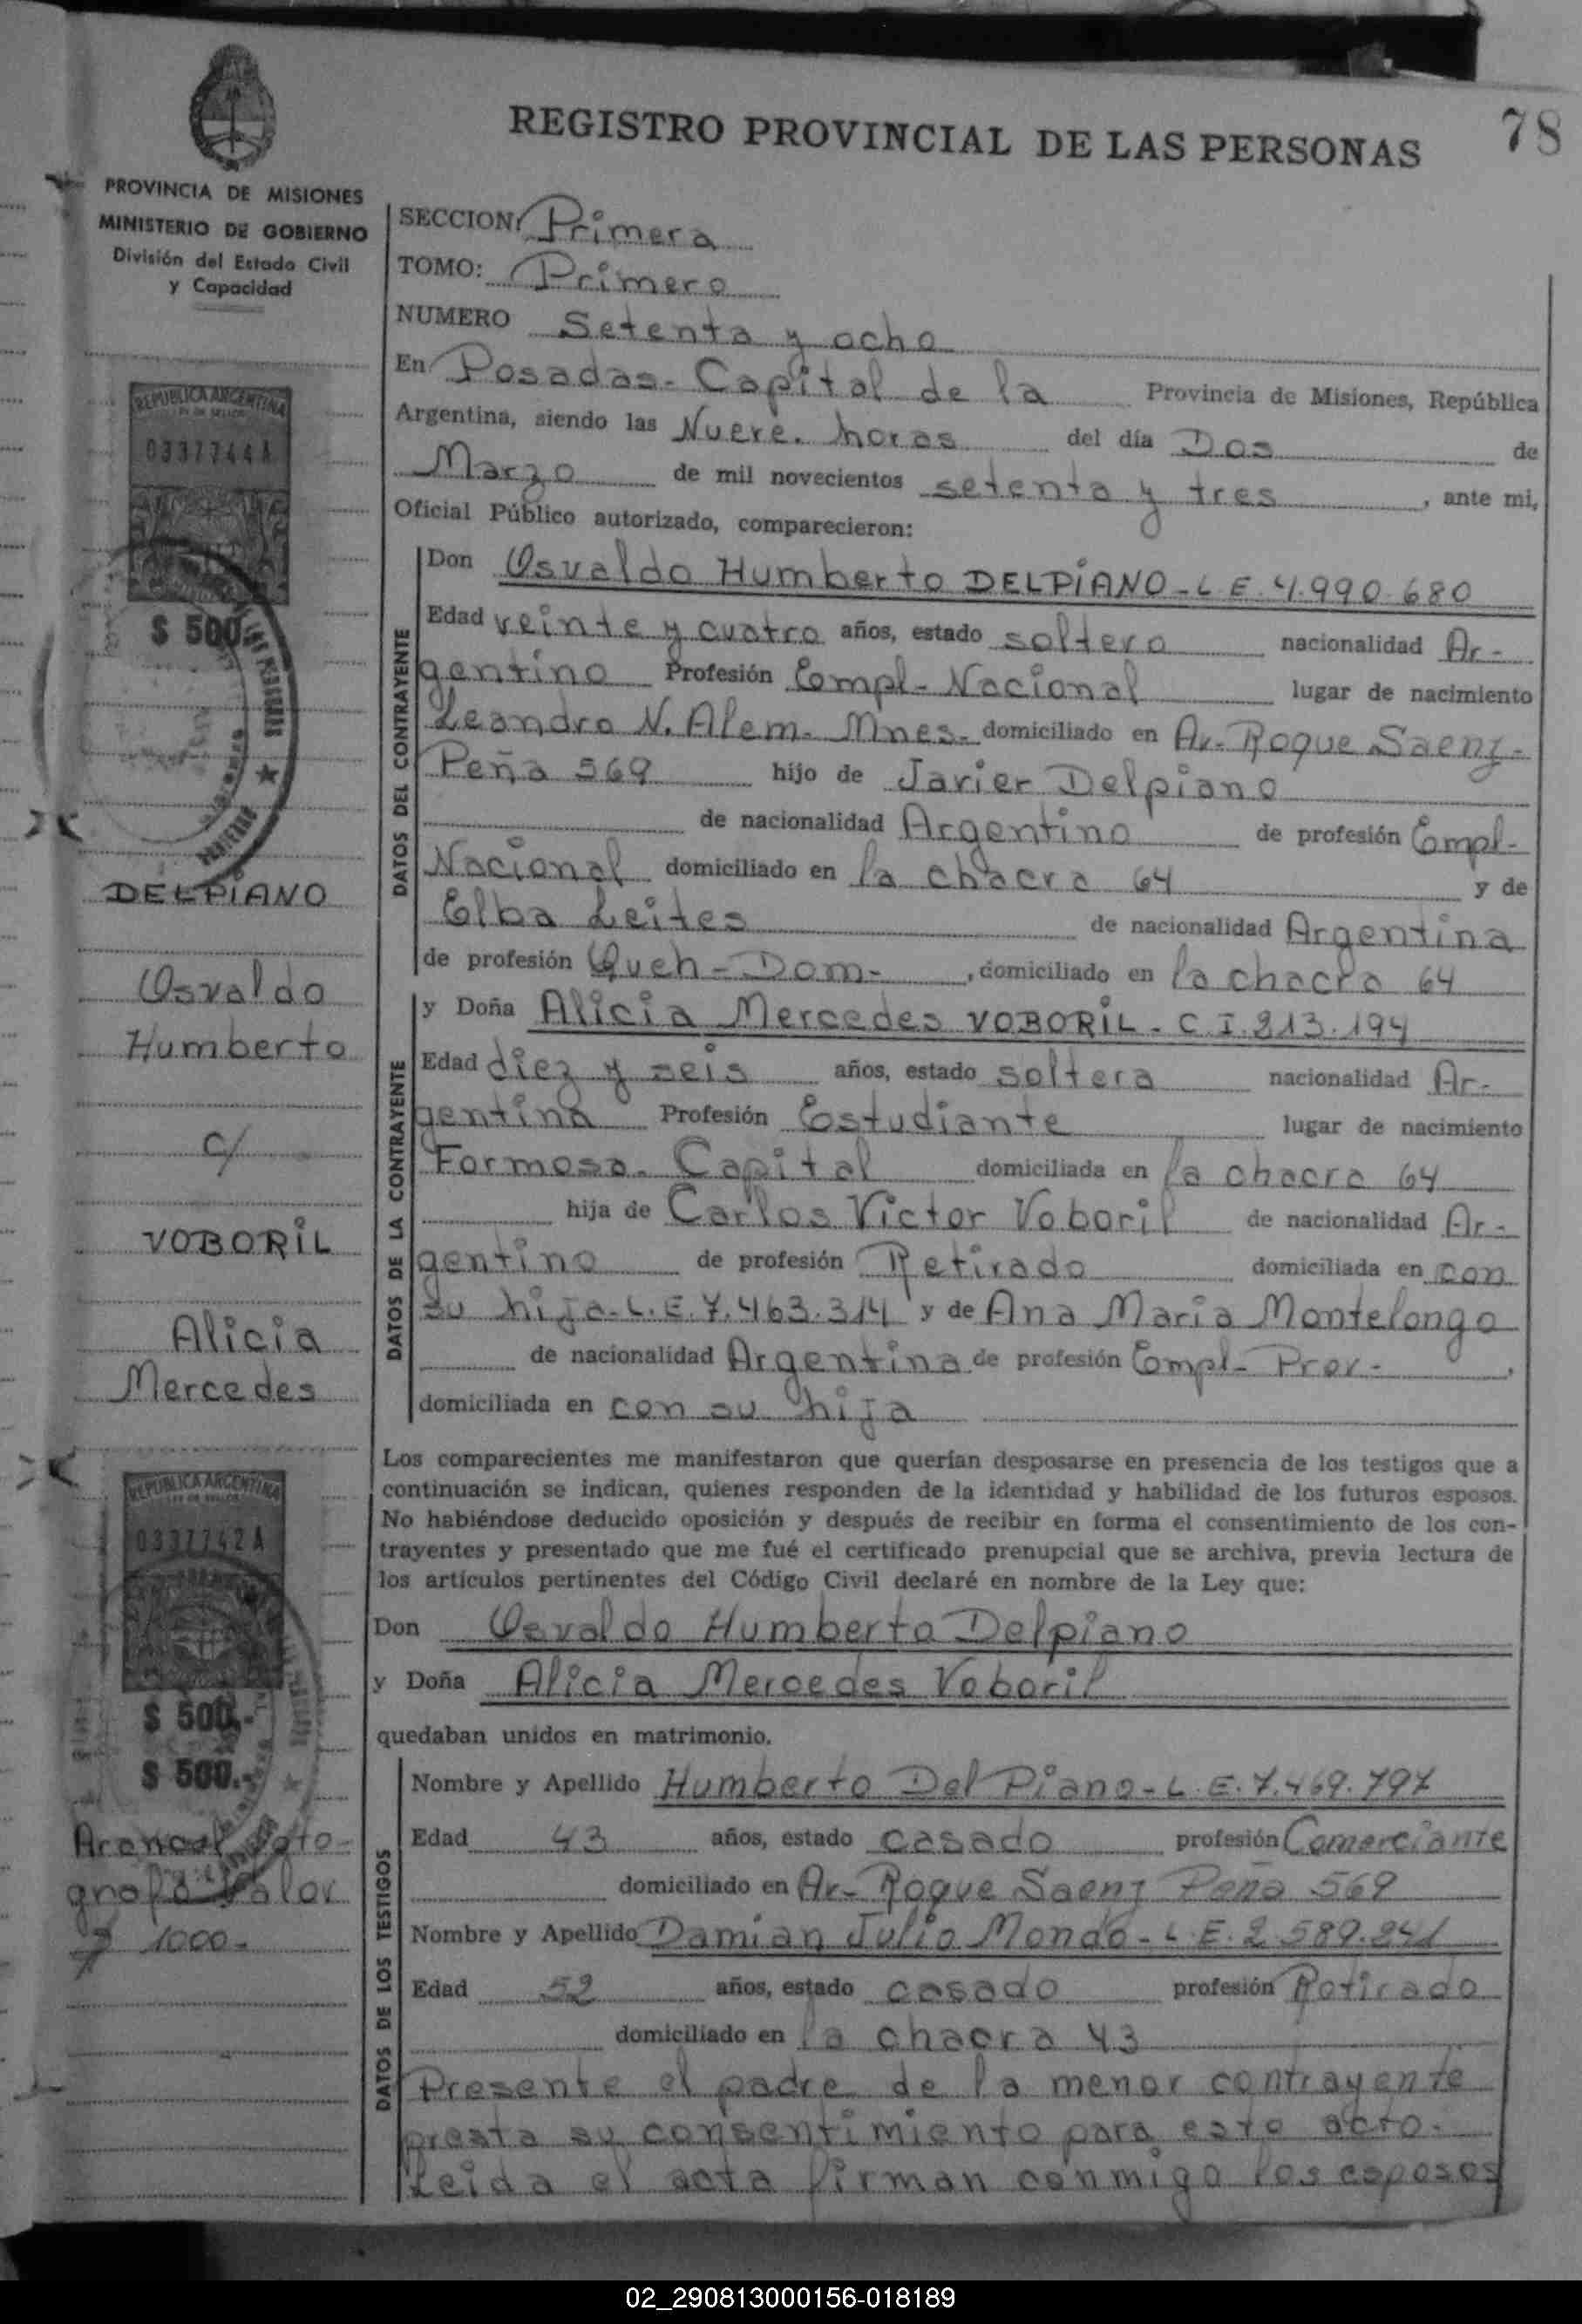 REGISTRO PROVINCIAL DE LAS PERSONAS
78
PROVINCIA DE MISIONES
MINISTERIO DE GOBIERNO
División del Estado Civil
y Capacidad
SECCION: Primera
TOMO: Primero
NUMERO Setenta y ocho
En Posadas - Capital de la Provincia de Misiones, República
Argentina, siendo las Nueve. horas del día Dos de
Marzo de mil novecientos setenta y tres, ante mi,
Oficial Público autorizado, comparecieron:
DATOS DEL CONTRAYENTE
Don Osvaldo Humberto DELPIANO - L.E. 4.990.680
Edad veinte y cuatro años, estado soltero nacionalidad Ar-
gentino Profesión Empl- Nacional lugar de nacimiento
Leandro N. Alem- Mnes- domiciliado en Av- Roque Saenz-
Peña 569 hijo de Javier Delpiano
de nacionalidad Argentino de profesión Empl-
Nacional domiciliado en la chacra 64 y de
Elba Leites de nacionalidad Argentina
de profesión Queh- Dom-, domiciliado en la chacra 64
DATOS DE LA CONTRAYENTE
y Doña Alicia Mercedes VOBORIL - C.I. 213.194
Edad diez y seis años, estado soltera nacionalidad Ar-
gentina Profesión Estudiante lugar de nacimiento
Formosa- Capital domiciliada en la chacra 64
hija de Carlos Victor Voboril de nacionalidad Ar-
gentino de profesión Retirado domiciliada en con
su hija- L.E. 7.463.314 y de Ana Maria Montelongo
de nacionalidad Argentina de profesión Empl- Prov-,
domiciliada en con su hija
Los comparecientes me manifestaron que querían desposarse en presencia de los testigos que a
continuación se indican, quienes responden de la identidad y habilidad de los futuros esposos.
No habiéndose deducido oposición y después de recibir en forma el consentimiento de los con-
trayentes y presentado que me fué el certificado prenupcial que se archiva, previa lectura de
los artículos pertinentes del Código Civil declaré en nombre de la Ley que:
Don Osvaldo Humberto Delpiano
y Doña Alicia Mercedes Voboril
quedaban unidos en matrimonio.
DATOS DE LOS TESTIGOS
Nombre y Apellido Humberto Del Piano- L.E. 7.469.797
Edad 43 años, estado casado profesión Comerciante
domiciliado en Av- Roque Saenz Peña 569
Nombre y Apellido Damian Julio Mondo- L.E. 2.589.241
Edad 52 años, estado casado profesión Retirado
domiciliado en la chacra 43
Presente el padre de la menor contrayente
presta su consentimiento para este acto-
Leida el acta firman conmigo los esposos
REPUBLICA ARGENTINA
0337744A
$ 500.-
DELPIANO
Osvaldo
Humberto
c/
VOBORIL
Alicia
Mercedes
REPUBLICA ARGENTINA
0337742A
$ 500.-
$ 500.-
Arancel
Valor
$ 1000-
02_290813000156-018189